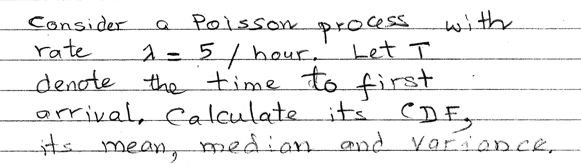 Consider a Poisson process with
rate λ = 5 / hour. Let T
denote the time to first
arrival. Calculate its CDF,
its mean, median and variance.